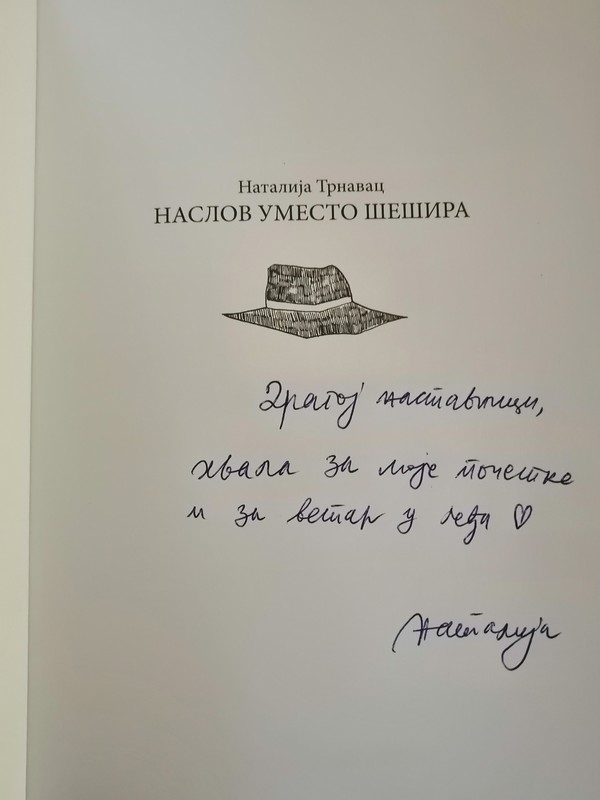 Наталија Трнавац
НАСЛОВ УМЕСТО ШЕШИРА
Драгој наставници,
хвала за моје почетке
и за ветар у леђа ♡
Наталија